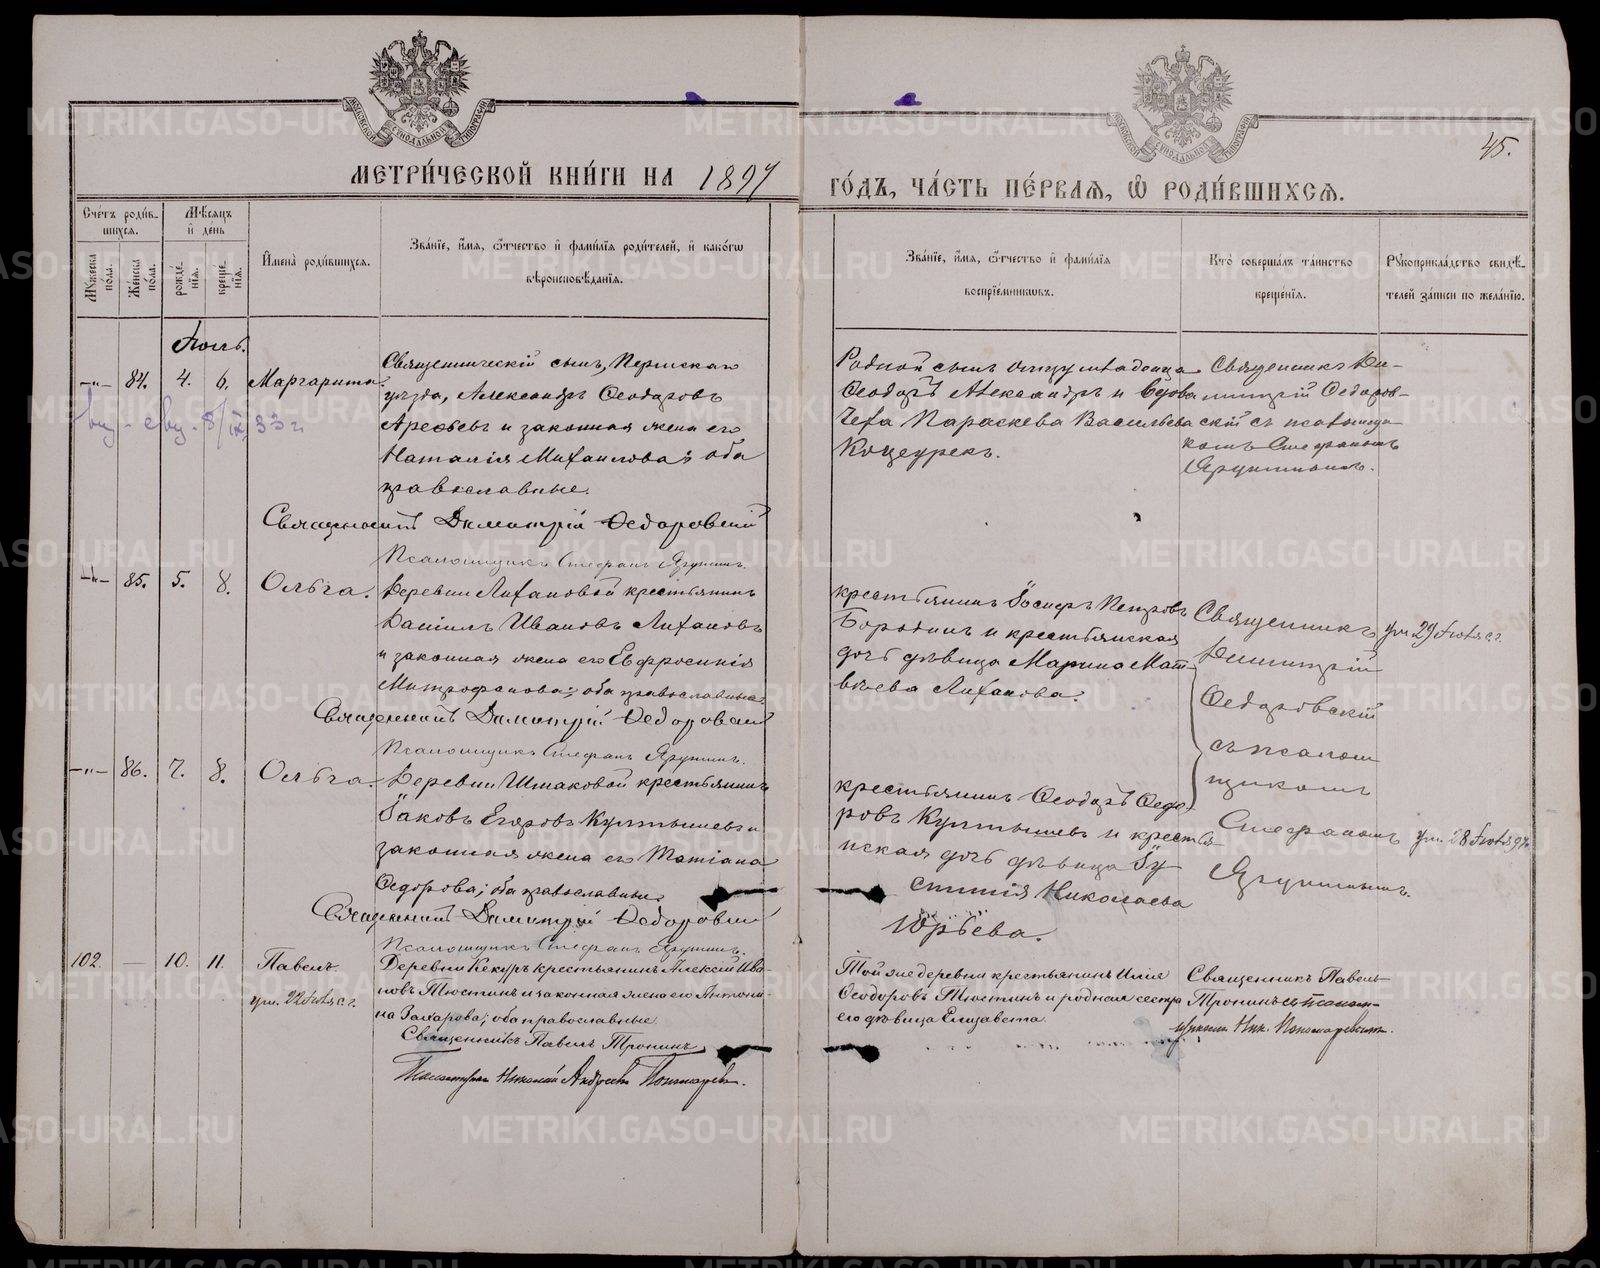 45.
МЕТРИ́ЧЕСКОЙ КНИ́ГИ НА 1897
ГО́ДЪ, ЧА́СТЬ ПЕ́РВАѦ, Ѽ РОДИ́ВШИХСѦ.
Сче́тъ роди́в-
шихся.
Мѣсяцъ
и день
Мꙋжеска по́ла.
Же́нска по́ла.
рожде́нїѧ.
креще́нїѧ.
Имена̀ роди́вшихсѧ.
Зва́нїе, и́мѧ, ѻ҆́тчество и҆ фами́лїѧ роди́телей, и҆ како́гѡ
вѣроисповѣ́данїѧ.
Зва́нїе, и́мѧ, ѻ҆́тчество и҆ фами́лїѧ
воспрїе́мникѡвъ.
Кто̀ соверша́лъ та́инство
креще́нїѧ.
Рꙋкоприкла́дство свидѣ́-
телей за́писи по жела́нїю.
Іюль.
84. 4. 6. Маргарита.
Священническій сынъ, Пермскаго
уѣзда, Александръ Ѳеодоровъ
и законная жена его
Наталія Михаилова; оба
православные.
Священникъ Димитрій Ѳедоровскій
Псаломщикъ Стефанъ Ярушинъ.
Родной сынъ
Ѳеодоръ Александръ и Вдова
Параскева Васильева
Священникъ Ди-
митрій Ѳедоров-
скій съ псаломщи-
комъ Стефаномъ
Ярушинымъ.
85. 5. 8. Ольга.
Деревни Лихановой крестьянинъ
Даніилъ Ивановъ Лихановъ
и законная жена его Евфросинія
Митрофанова; оба православные.
Священникъ Димитрій Ѳедоровскій
Псаломщикъ Стефанъ Ярушинъ.
крестьянинъ Іосифъ Петровъ
Бородинъ и крестьянская
дочь дѣвица Марина Мат-
вѣева Лиханова.
Священникъ
Димитрій
Ѳедоровскій
съ псалом
щикомъ
Стефаномъ
Ярушинымъ.
ум. 29 Іюля с.г.
86. 7. 8. Ольга.
Деревни Шмаковой крестьянинъ
Іаковъ Егоровъ Култышевъ и
законная жена его Татіана
Ѳедорова; оба православные
Священникъ Димитрій Ѳедоровскій
Псаломщикъ Стефанъ Ярушинъ.
крестьянинъ Ѳеодоръ Ѳедо-
ровъ Култышевъ и крестья-
нская дочь дѣвица Іу-
стинія Николаева
Юрьева.
ум. 28 Іюля 97
102. — 10. 11. Павелъ
ум. 22 Іюля с.г.
Деревни Кекуръ крестьянинъ Алексій Ива-
новъ Тюстинъ и законная жена его Антони-
на Захарова; оба православные
Священникъ Павелъ Тронинъ
Псаломщикъ Николай Андреевъ Пономаревъ.
Той же деревни крестьянинъ Илія
Ѳеодоровъ Тюстинъ и родная сестра
его дѣвица Елизавета.
Священникъ Павелъ
Тронинъ съ псалом-
щикомъ Ник. Пономаревымъ.
METRIKI.GASO-URAL.RU